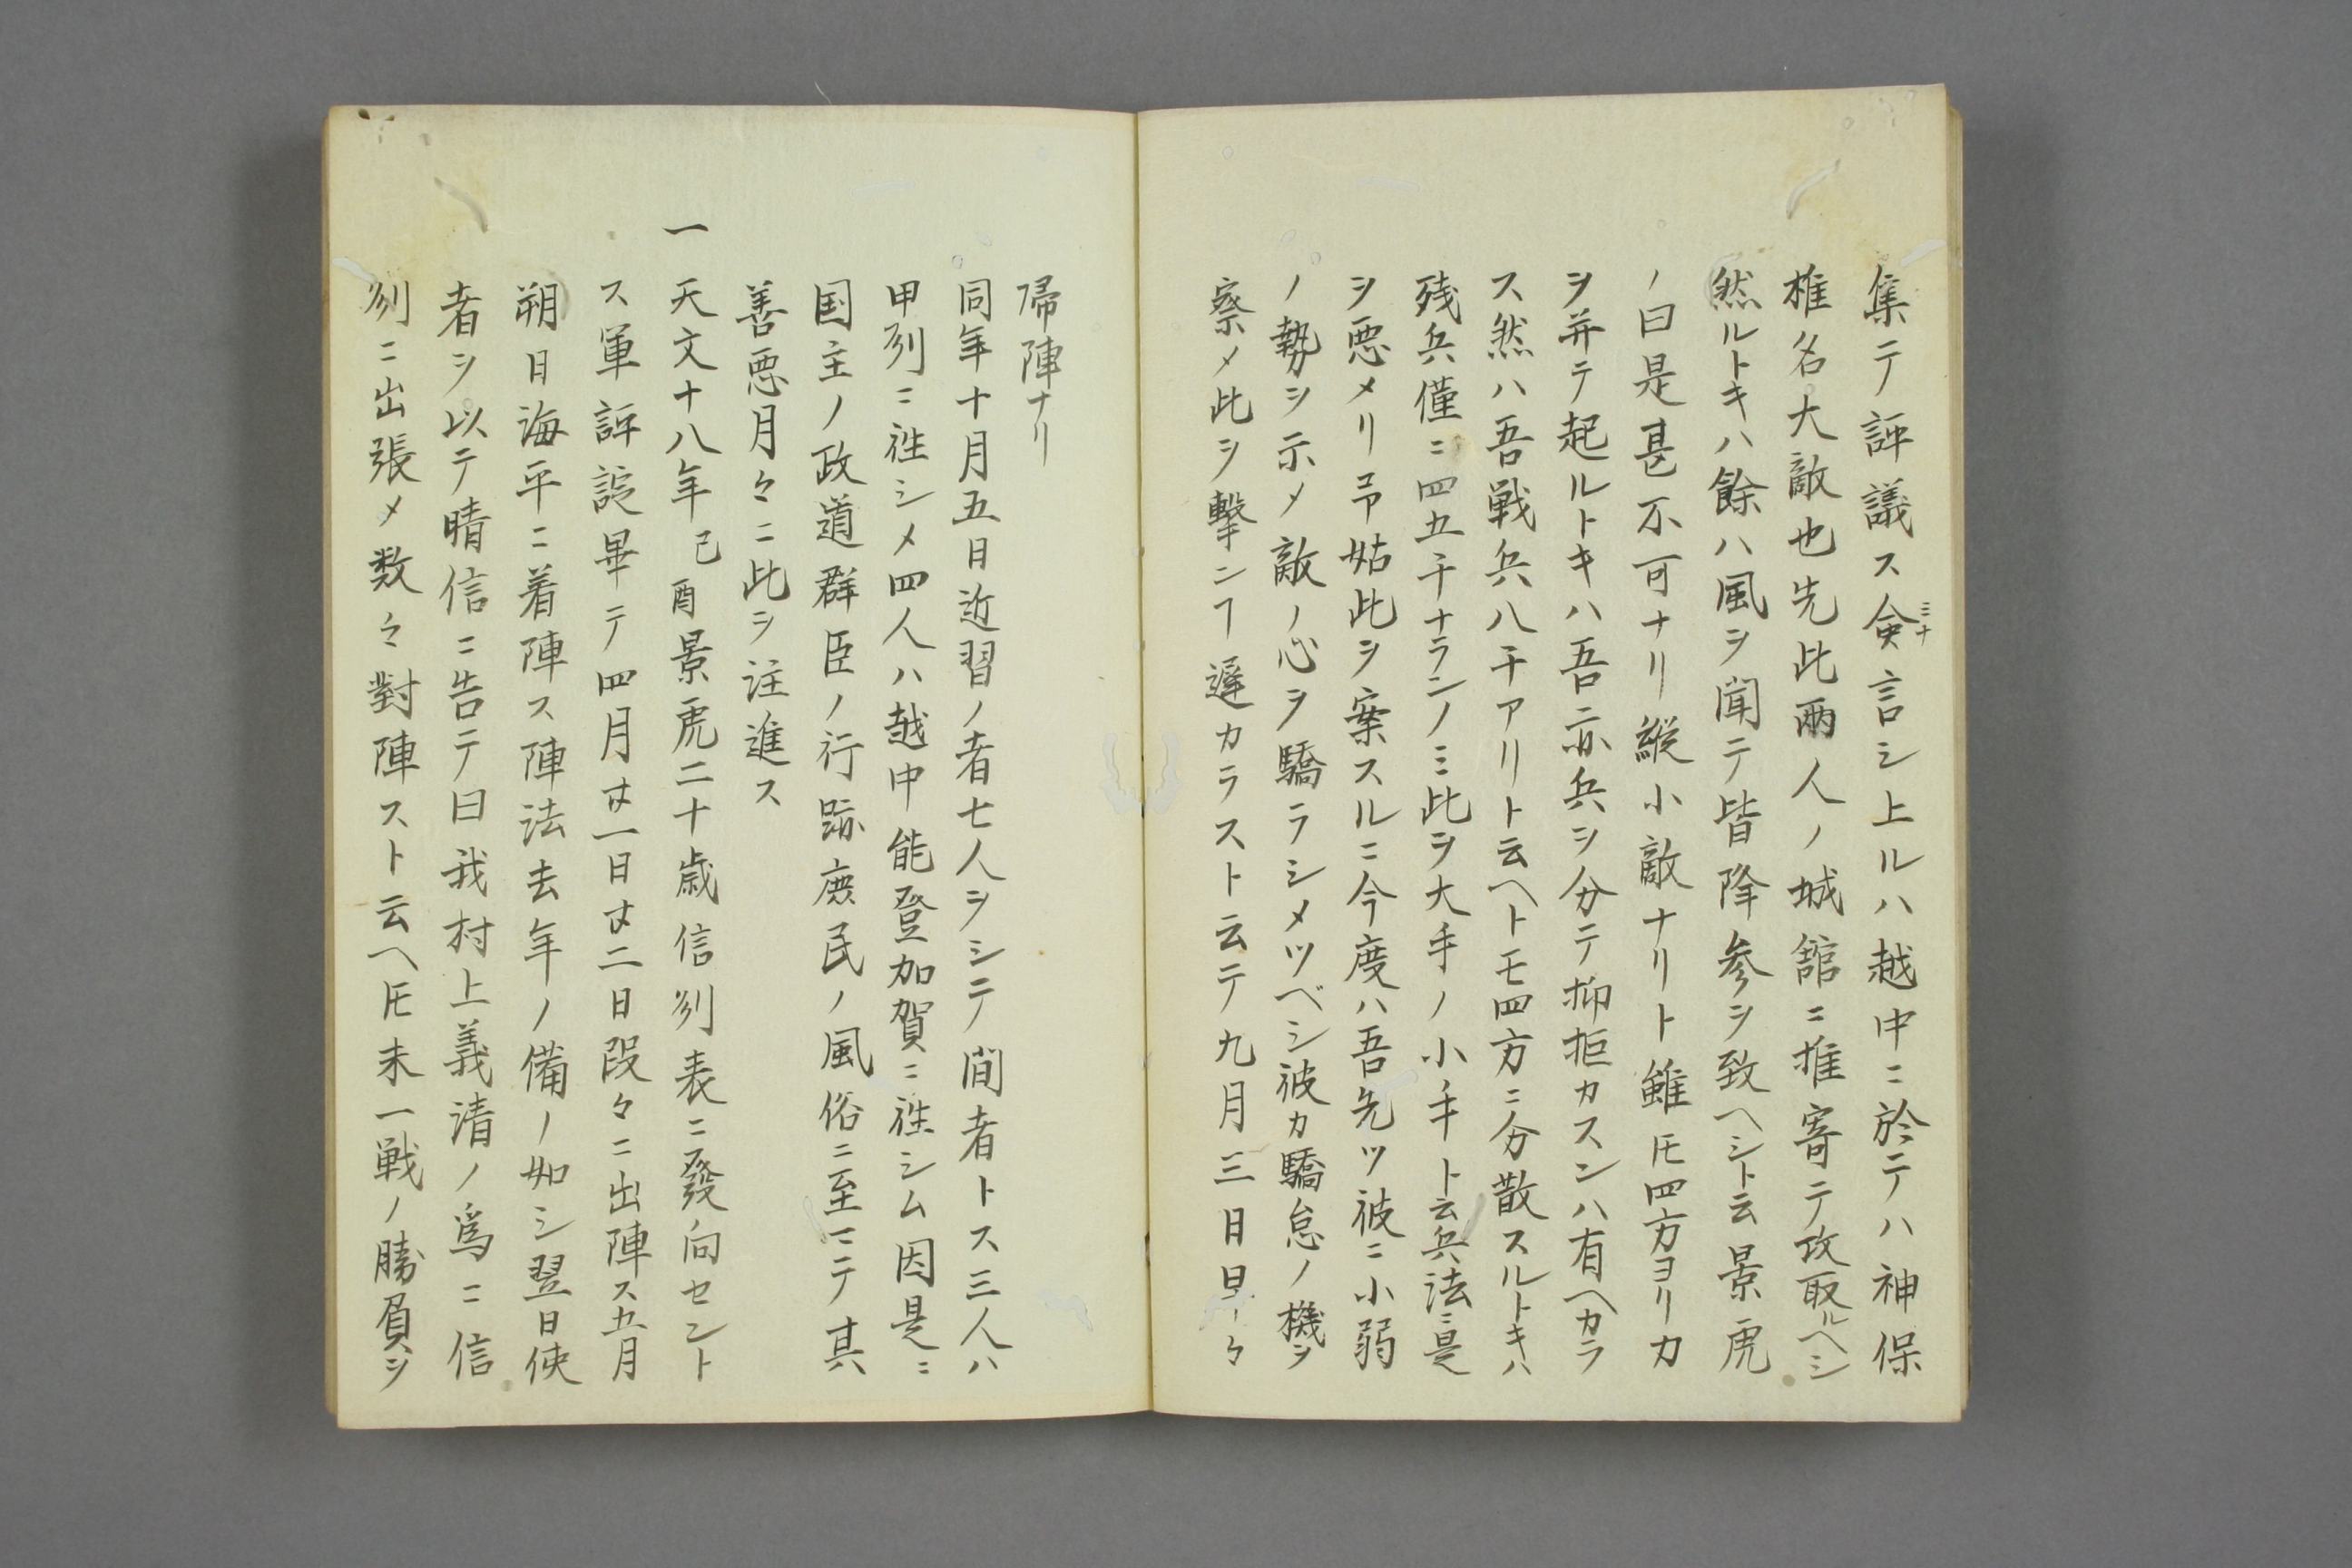 集テ評議ス僉ミナ言シ上ルハ越中ニ於テハ神保
椎名大敵也先此兩人ノ城舘ニ推寄テ攻取ルヘシ
然ルトキハ餘ハ風ヲ聞テ皆降参ヲ致ヘシト云景虎
ノ曰是甚不可ナリ縦小敵ナリト雖𪜈四方ヨリカ
ヲ并テ起ルトキハ吾亦兵ヲ分テ抑拒カスンハ有ヘカラ
ス然ハ吾戦兵八千アリト云ヘトモ四方ニ分散スルトキハ
残兵僅ニ四五千ナランノミ此ヲ大手ノ小手ト云兵法ニ是
ヲ悪メリ吊姑此ヲ案スルニ今度ハ吾先ツ彼ニ小弱
ノ勢ヲ示メ敵ノ心ヲ驕ラシメツベシ彼カ驕怠ノ機ヲ
察メ此ヲ撃ンヿ遅カラスト云テ九月三日早々
帰陣ナリ
同年十月五日近習ノ者七人ヲシテ間者トス三人ハ
甲列ニ徃シメ四人ハ越中能登加賀ニ徃シム因是ニ
国主ノ政道群臣ノ行跡庶民ノ風俗ニ至マテ其
善悪月々ニ此ヲ注進ス
一天文十八年己酉景虎二十歳信列表ニ發向セント
ス軍評諚畢テ四月廿一日廿二日段々ニ出陣ス五月
朔日海平ニ着陣ス陣法去年ノ備ノ如シ翌日使
者ヲ以テ晴信ニ告テ曰我村上義清ノ爲ニ信
列ニ出張メ数々對陣スト云ヘ𪜈未一戦ノ勝負ヲ